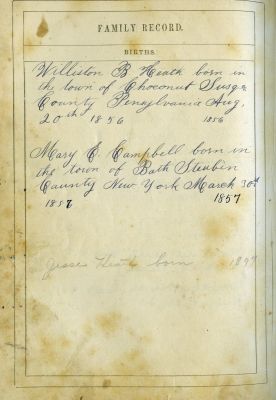 FAMILY RECORD.
BIRTHS.
Williston B Heath born in
the town of Choconut Susq.
County Pensylvania Aug,
20th 1856 1856
Mary E. Campbell born in
the town of Bath Steuben
County New York March 30th
1857 1857
Jesse Heath born 1897